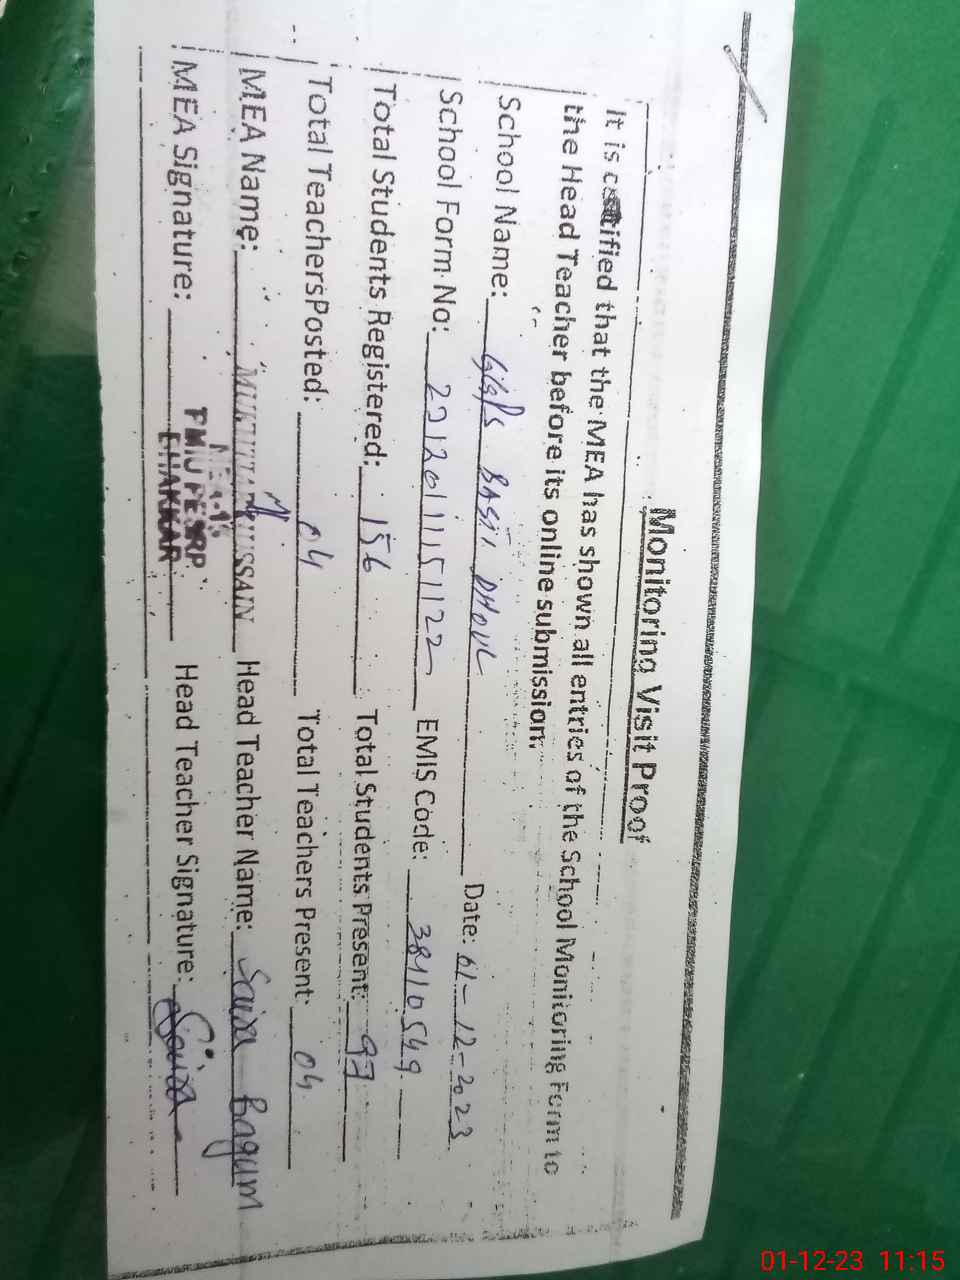 Monitoring Visit Proof
It is certified that the MEA has shown all entries of the School Monitoring Form to
the Head Teacher before its online submission.
School Name: G/G/P/S BASII DHOUL Date: 01-12-2023
School Form No: 23120111151122 EMIS Code: 38110549
Total Students Registered: 156 Total Students Present: 97
Total Teachers Posted: 04 Total Teachers Present: 04
MEA Name: HUSSAIN Head Teacher Name: Saixa Bagum
MEA Signature: Head Teacher Signature: Saixa
PMIU PESRP
BHAKKAR
01-12-23 11:15